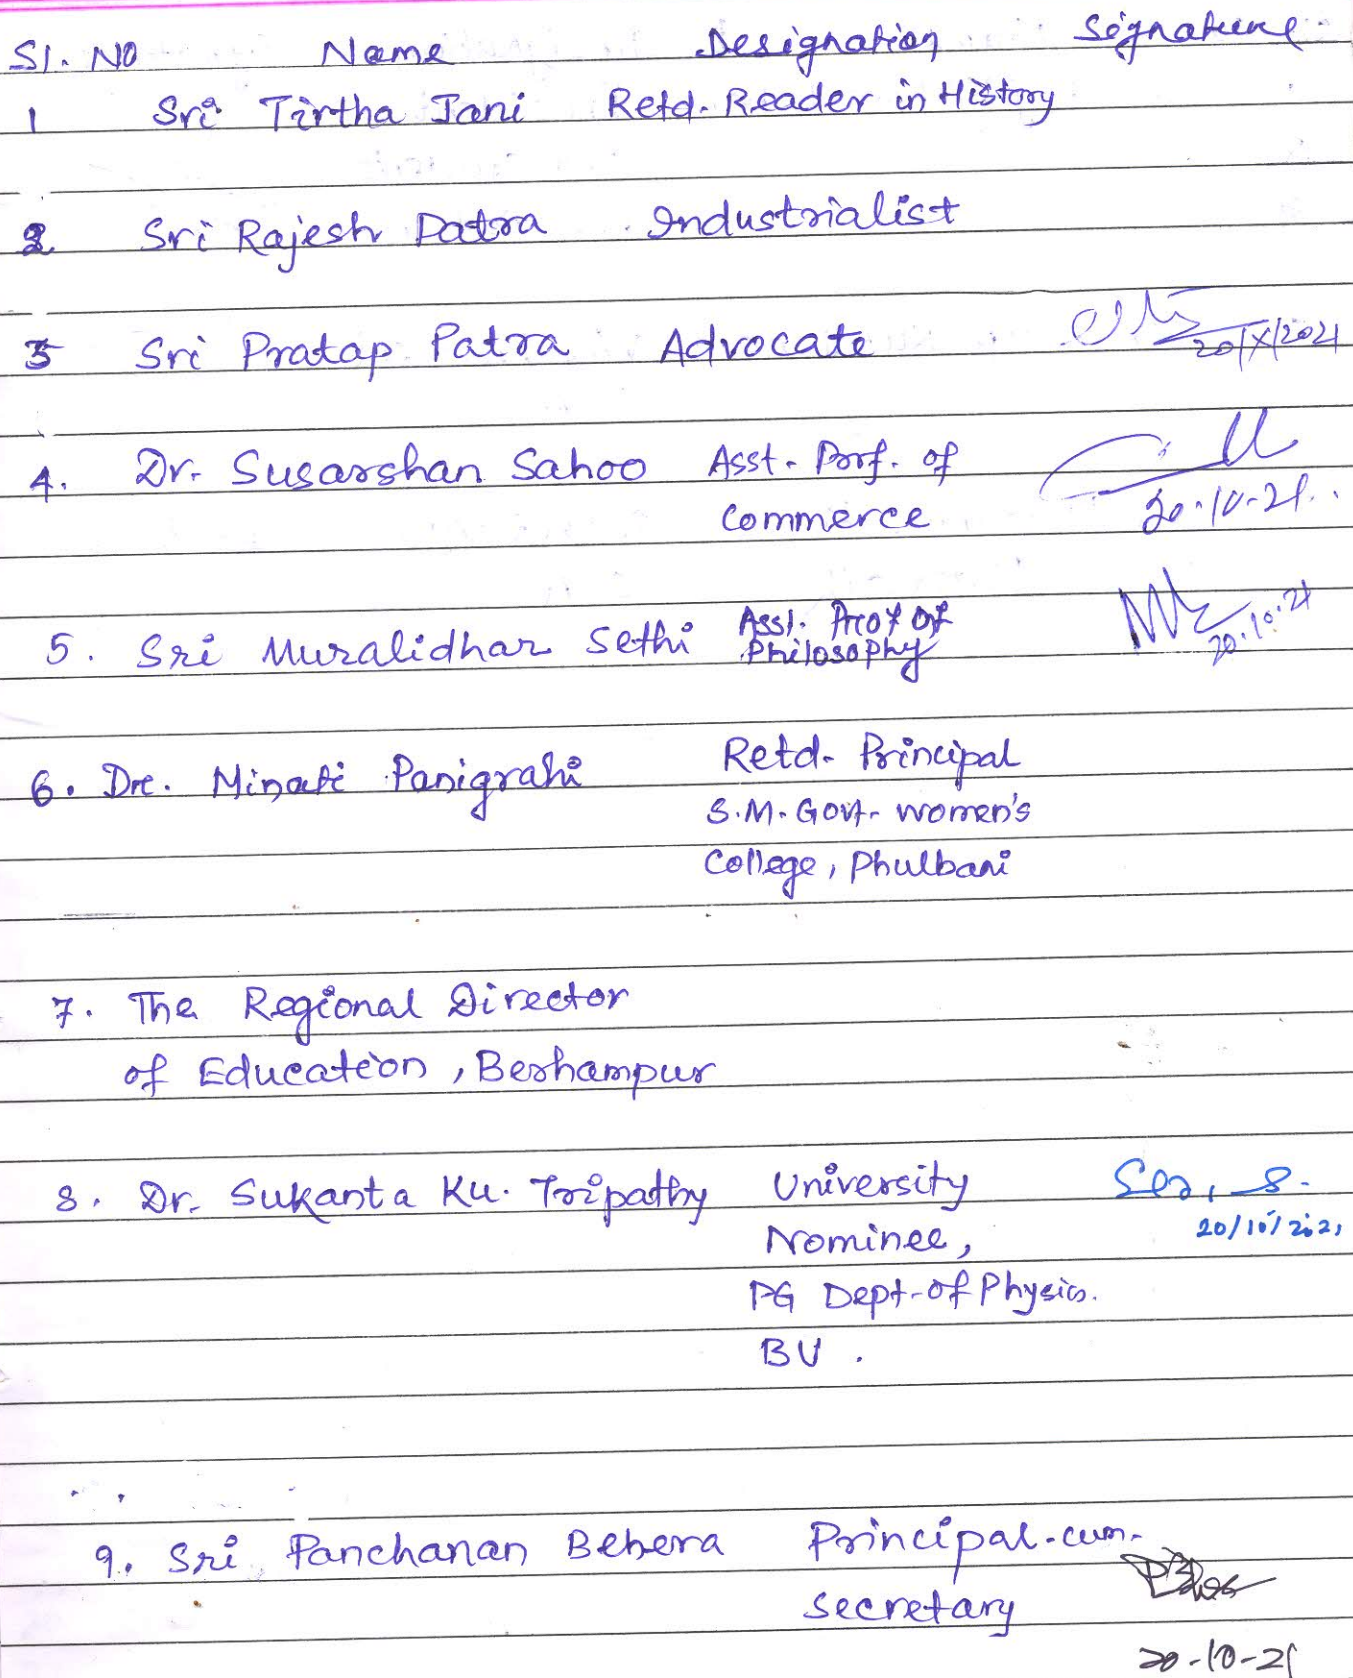 Sl. No Name Designation Signature
1 Sri Tirtha Jani Retd. Reader in History
2 Sri Rajesh Patra Industrialist
3 Sri Pratap Patra Advocate
20/X/2021
4. Dr. Susarshan Sahoo Asst. Porf. of
Commerce 20.10.21.
5. Sri Muralidhar Sethi Asst. Prof of
Philosophy 20.10.21
6. Dr. Minati Panigrahi Retd. Principal
S.M. Govt. Women's
College, Phulbani
7. The Regional Director
of Education, Berhampur
8. Dr. Sukanta Ku. Tripathy University
Nominee, 20/10/2021
PG Dept. of Physics.
BU.
9. Sri Panchanan Behera Principal-cum-
Secretary
20-10-21